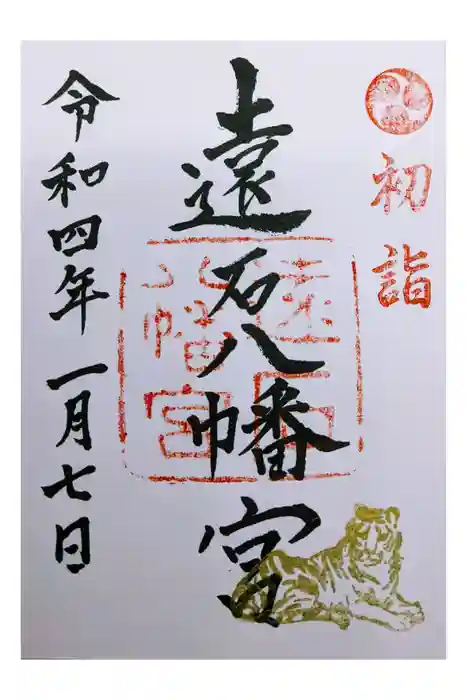 初詣
遠石八幡宮
遠石
八幡宮
令和四年一月七日